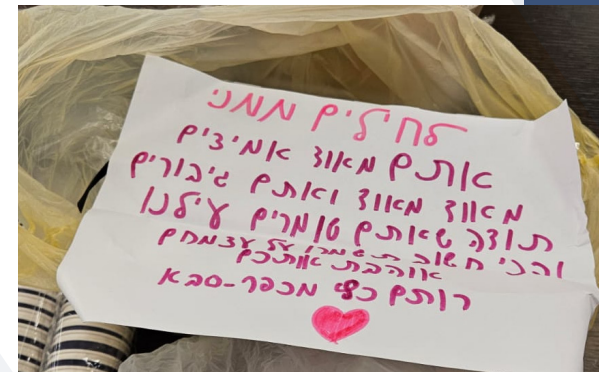 לחילים ממני
אתם מאוד אמיצים
מאווד מאווד ואתם גיבורים
תודה שאתם שומרים עילנו
והכי חשוב תשמרו על עצמחם
אוהבת אותכם
רותם מכפר-סבא